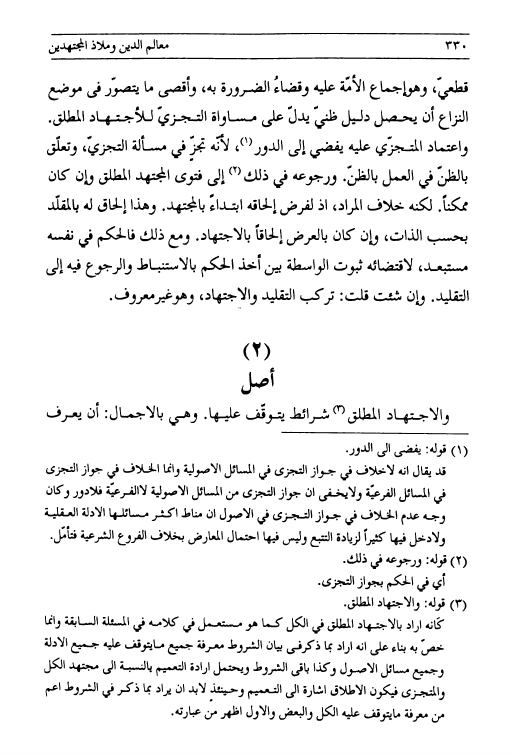 ٣٣٠ معالم الدين وملاذ المجتهدين
قطعيّ، وهوإجماع الأمّة عليه وقضاءُ الضرورة به، وأقصى ما يتصوّر فى موضع
النزاع أن يحصل دليل ظنيّ يدلّ على مساواة التجزيّ للأجتهاد المطلق.
واعتماد المتجزّي عليه يفضي إلى الدور (١)، لأنّه تجزّ في مسألة التجزيّ، وتعلّق
بالظنّ في العمل بالظنّ. ورجوعه في ذلك (٢) إلى فتوى المجتهد المطلق وإن كان
ممكناً. لكنه خلاف المراد، اذ لفرض إلحاقه ابتداءً بالمجتهد. وهذا إلحاق له بالمقلّد
بحسب الذات، وإن كان بالعرض إلحاقاً بالاجتهاد. ومع ذلك فالحكم في نفسه
مستبعد، لاقتضائه ثبوت الواسطة بين أخذ الحكم بالاستنباط والرجوع فيه إلى
التقليد. وإن شئت قلت: تركب التقليد والاجتهاد، وهوغيرمعروف.
(٢)
أصل
والاجتهاد المطلق (٣) شرائط يتوقّف عليها. وهي بالاجمال: أن يعرف
(١) قوله: يفضى الى الدور.
قد يقال انه لاخلاف في جواز التجزى في المسائل الاصولية وانما الخلاف في جواز التجزى
في المسائل الفرعيّة ولايخفى ان جواز التجزى من المسائل الاصولية لاالفرعيّة فلادور وكان
وجه عدم الخلاف في جواز التجزى في الاصول ان مناط اكثر مسائلها الادلة العقلية
ولادخل فيها كثيراً لزيادة التتبع وليس فيها احتمال المعارض بخلاف الفروع الشرعية فتأمّل.
(٢) قوله: ورجوعه في ذلك.
أي في الحكم بجواز التجزى.
(٣) قوله: والاجتهاد المطلق.
كأنه اراد بالاجتهاد المطلق في الكل كما هو مستعمل في كلامه في المسئلة السابقة وانما
خصّ به بناء على انه اراد بما ذكرفى بيان الشروط معرفة جميع مايتوقف عليه جميع الادلة
وجميع مسائل الاصول وكذا باقى الشروط ويحتمل ارادة التعميم بالنسبة الى مجتهد الكل
والمتجزى فيكون الاطلاق اشارة الى التعميم وحينئذ لابد ان يراد بما ذكر في الشروط اعم
من معرفة مايتوقف عليه الكل والبعض والاول اظهر من عبارته.